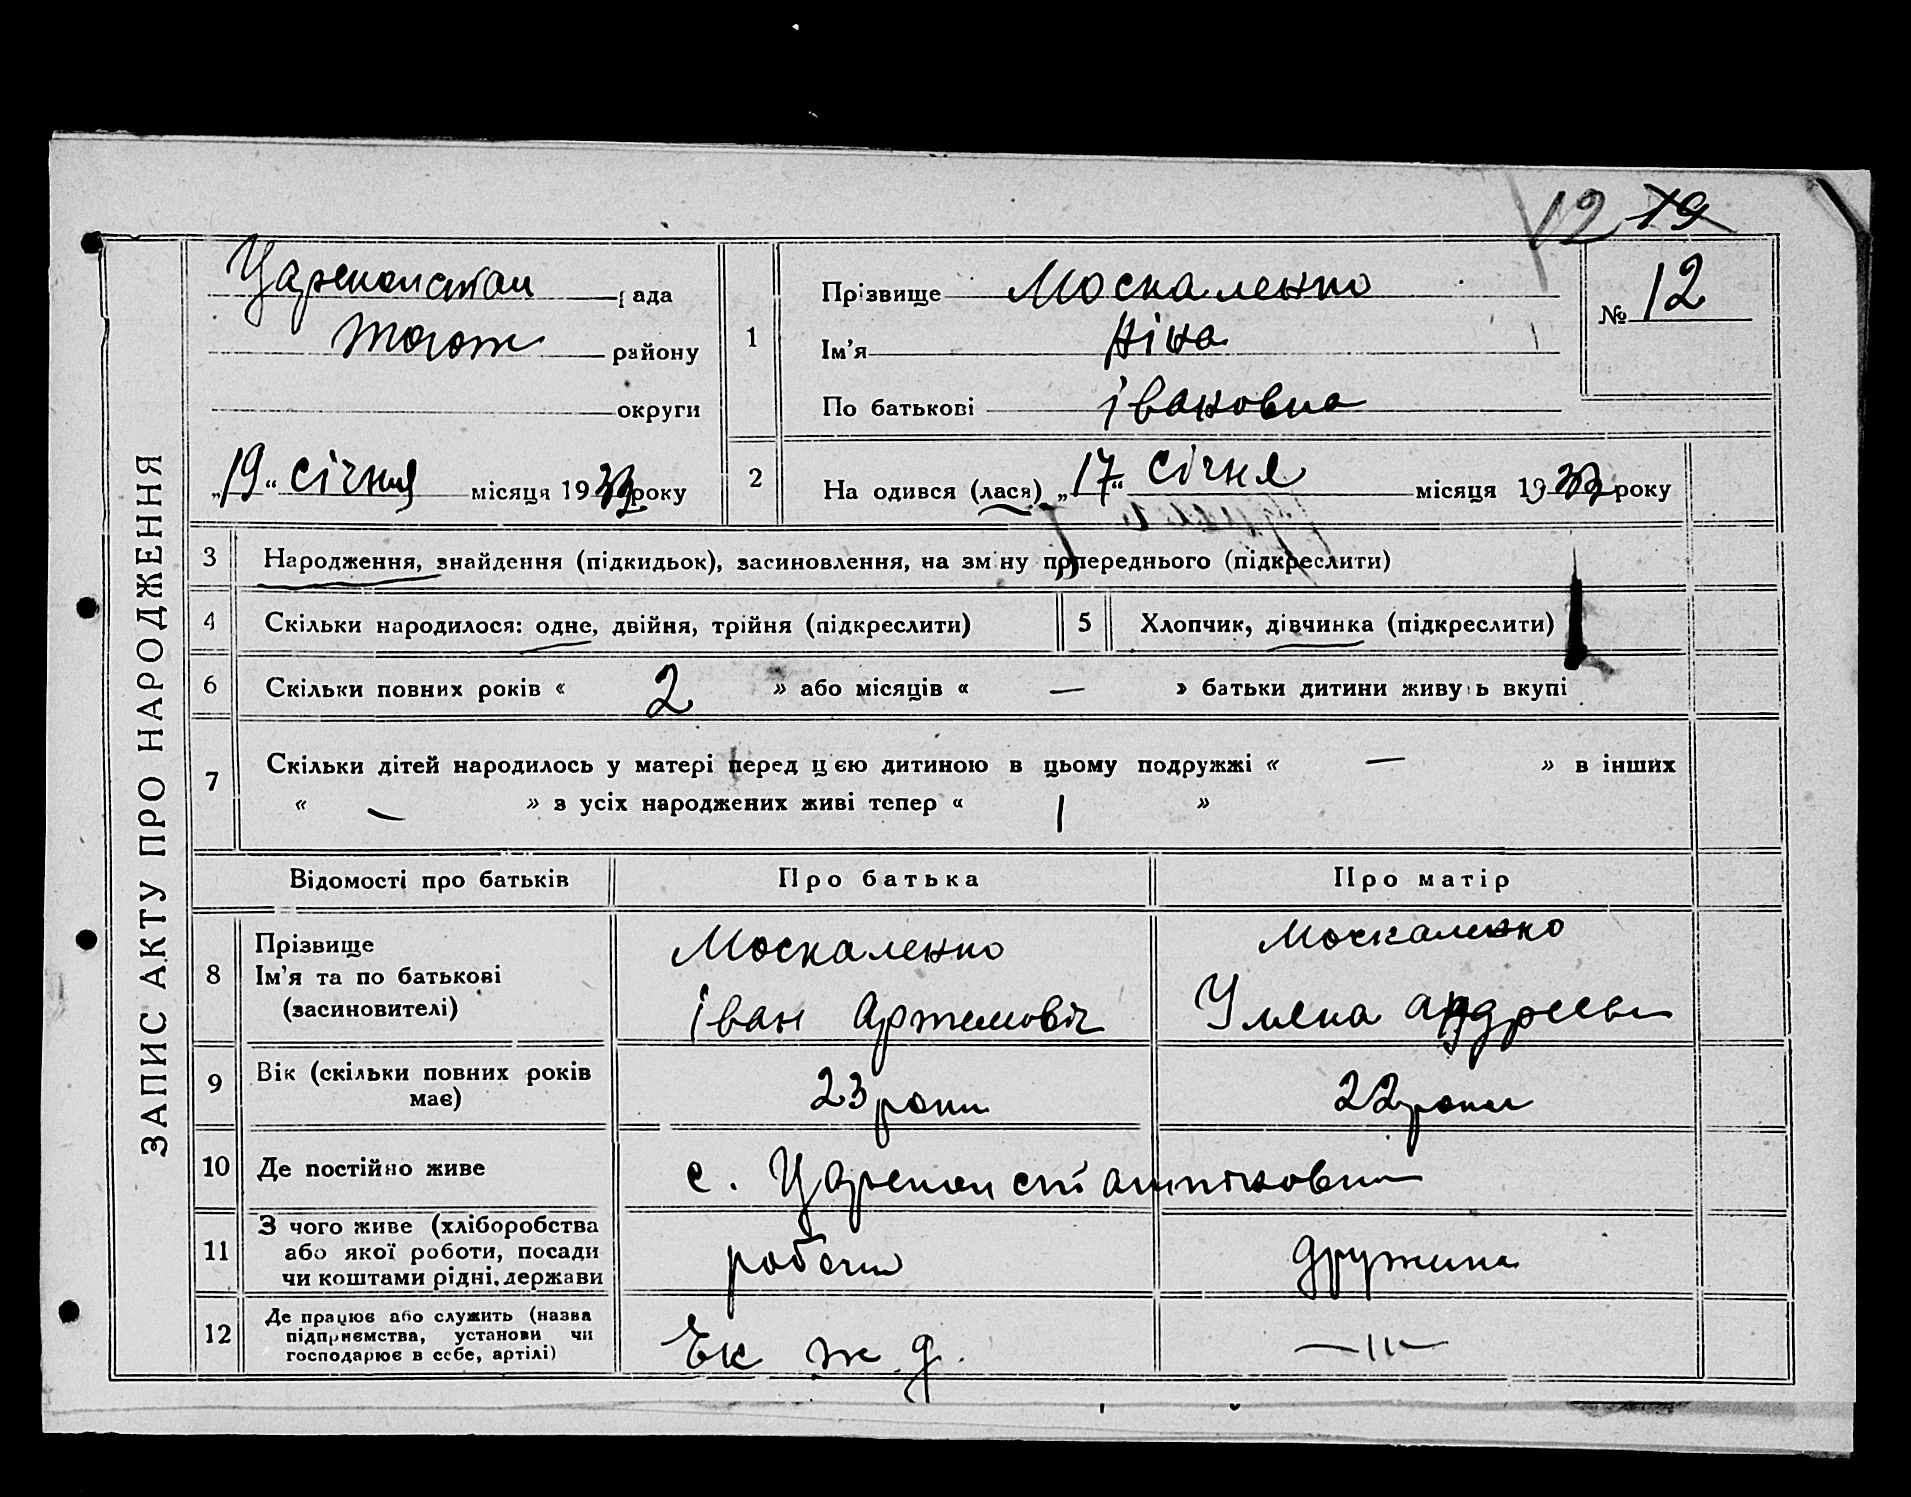 12 19
Цареконстан рада
района
округи
„19“ січня місяця 1933 року
1
Прізвище Москаленко
Ім'я Ніна
По батькові івановна
№ 12
2
На одився (лася) „17“ січня місяця 1933 року
ЗАПИС АКТУ ПРО НАРОДЖЕННЯ
3 Народження, знайдення (підкидьок), засиновлення, на зміну попереднього (підкреслити)
4 Скільки народилося: одне, двійня, трійня (підкреслити) 5 Хлопчик, дівчинка (підкреслити)
6 Скільки повних років « 2 » або місяців « — » батьки дитини живуть вкупі
7 Скільки дітей народилось у матері перед цією дитиною в цьому подружжі « — » в інших
« — » з усіх народжених живі тепер « 1 »
Відомості про батьків Про батька Про матір
8 Прізвище
Ім'я та по батькові
(засиновителі)
Москаленко
іван Артемовіч
Москаленко
Уляна Андреевн
9 Вік (скільки повних років
має)
23 роки 22 роки
10 Де постійно живе с. Цареконстантіновка
11 З чого живе (хліборобства
або якої роботи, посади
чи коштами рідні, держави
робочи дружина
12 Де працює або служить (назва
підприємства, установи чи
господарює в себе, артілі)
Ек ж д. — 11 —